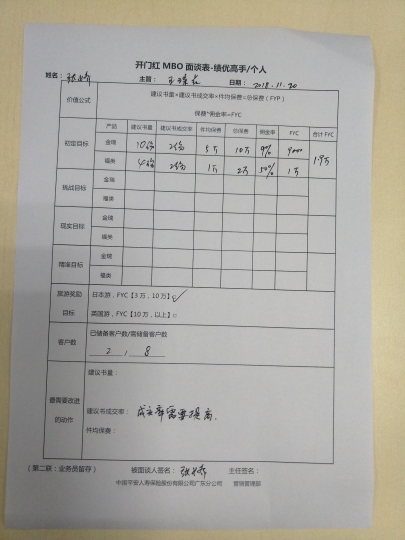 开门红 MBO 面谈表-绩优高手/个人
姓名： 主管： 日期：2018.11.20
价值公式 建议书量×建议书成交率×件均保费=总保费（FYP）
保费*佣金率=FYC
初定目标 产品 建议书量 建议书成交率 件均保费 总保费 佣金率 FYC 合计 FYC
金瑞 10份 2份 5万 10万 9% 9000 1.9万
福类 4份 2份 1万 2万 50% 1万
挑战目标 金瑞
福类
现实目标 金瑞
福类
精准目标 金瑞
福类
旅游奖励 日本游，FYC【3万，10万】
目标 英国游，FYC【10万，以上】
客户数 已储备客户数/需储备客户数
2 , 8
建议书量：
最需要改进
的动作 建议书成交率：成交率需要提高.
件均保费：
（第二联：业务员留存） 被面谈人签名： 主任签名：
中国平安人寿保险股份有限公司广东分公司 营销管理部